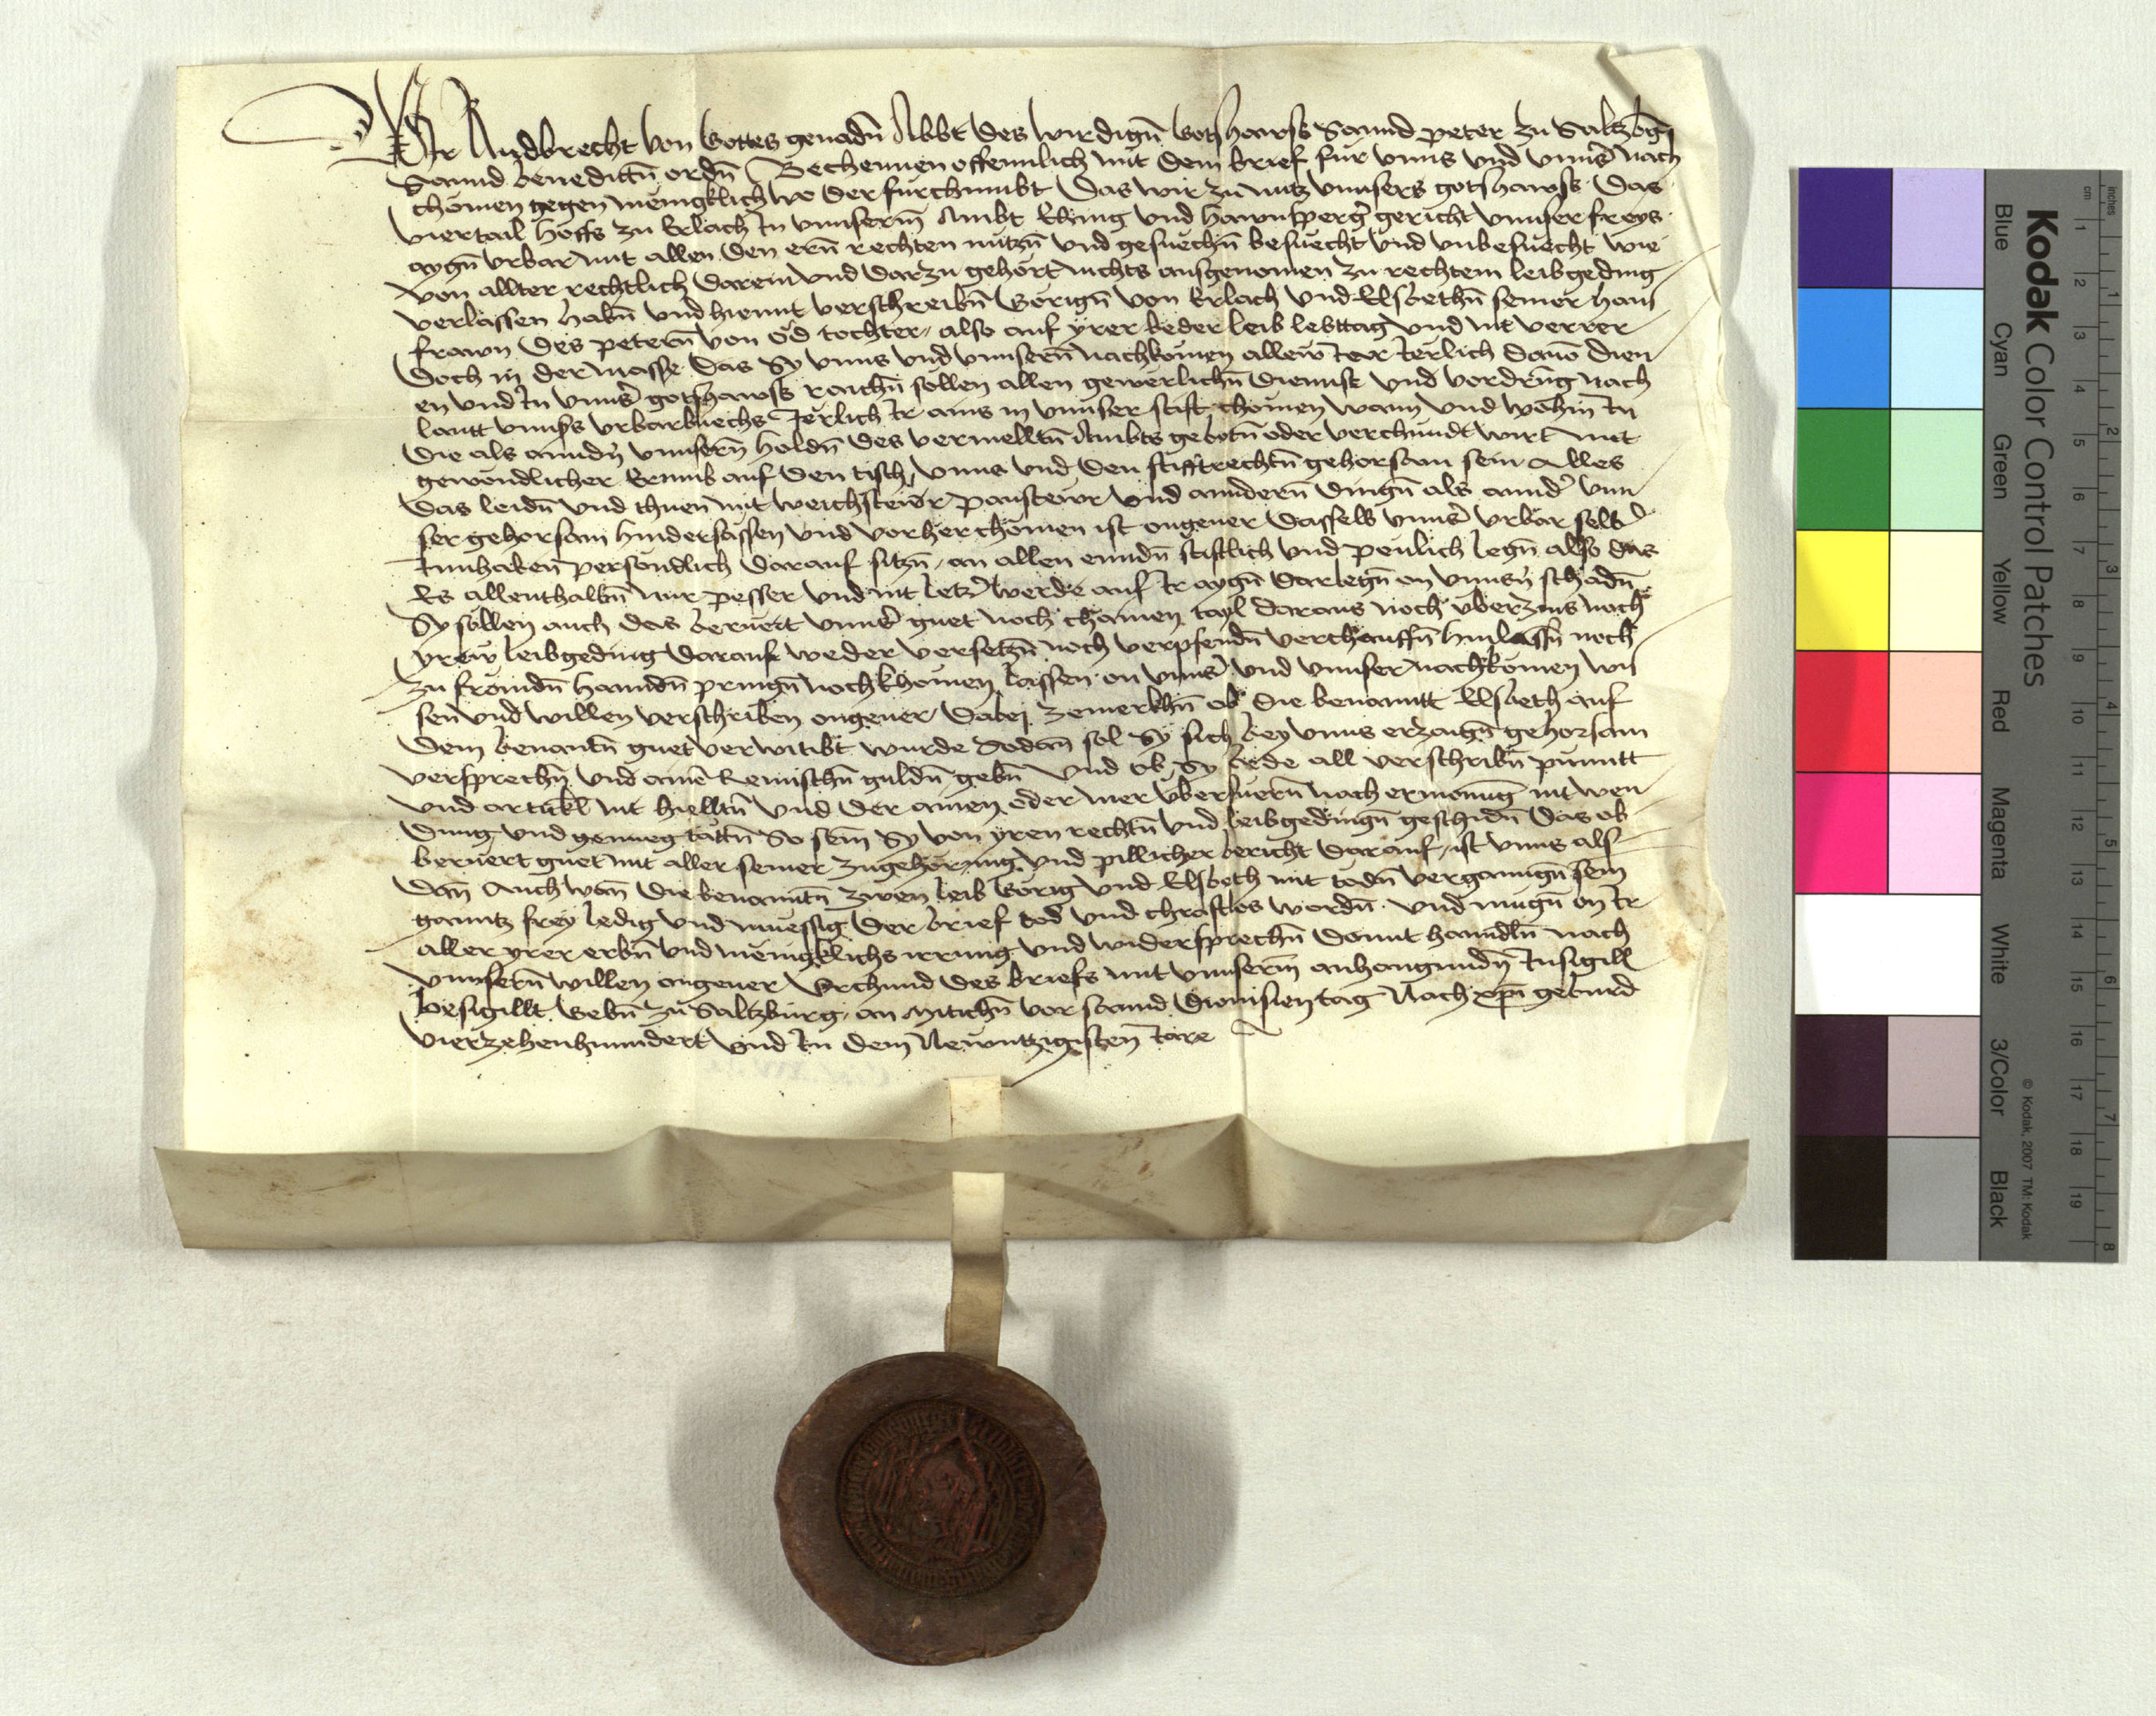 Wir Rudbrecht von Gottes genadn̄ Abbt des wirdign̄ Gotshawss Sannd peter zu Saltzb̄g
Sannd benedictn̄ ordn̄ Bechennen offennlich mit dem brief fur vnns vnd vnns̄ nach
chomen gegen menigklich wo der furchumbt Das wir zu nutz vnnsers gotshawss Das
viertail hoffs zu Erlach In vnnserm̄ Ambt Eking vnd hawnsperḡ gericht vnnser freys
aygn̄ vrbar mit allen den ern̄ rechten nutzn̄ vnd gesuechn̄ besuecht vnd vnbesuecht wie
von allter rechtlich darein vnd darzu gehort nichts ausgenomen zu rechtem leibgeding
verlassen habn̄ vnd hiemit verschreibn̄ Gorign̄ von Erlach vnd Elsbethn̄ seiner haus
frawn des petern̄ von Öd tochter also auf yrer beder leib lebttag vnd nit verrer
Doch in der masse das Sy vnns vnd vnnsern̄ nachkomen allew Iar Ierlich dauō dien
en vnd In vnns̄ gotshawss raichn̄ sollen allen gewerlichn̄ diennst vnd vordrūg nach
lautt vnns̄s vrbarbuechs Ierlich Ir ains in vnnser stift chomen wann vnd wohin In
die als annd̄n vnnsern̄ holdn̄ des vermelltn̄ Ambts gebotn̄ oder verchundt wirt mit
gewondlicher Erung auf den tisch vnns vnd den stifftrechtn̄ gehorsam sein alles
das leidn̄ vnd thuen mit weichstewr paustewr vnd anndern̄ dingn̄ als annd̄ vnn
ser gehorsam hindersassen vnd vorher chomen ist ongeuer dasselb vnns̄ vrbar selb
Innhaben persondlich darauf sitzn̄ an allen ennd̄n stiftlich vnd peulich legn̄ also das
Es allenthalbn̄ nur pesser vnd nit letz̄ werde auf Ir aygn̄ darlegn̄ on vnns̄n schad̄n
Sy sollen auch das beruert vnns̄ guet noch chainen tayl daraus noch vberzins noch
yrew leibgeding darauf weder versetzn̄ noch verpfendn̄ verchauffn̄ hinlassn̄ noch
zu fromdn̄ hanndn̄ pringn̄ noch khomen lassen on vnns̄ vnd vnnser nachkomen wis
sen vnd willen verschriben ongeuer Dabej zemerkhn̄ ob die benanntt Elsbeth auf
dem benantn̄ guet verwitibt wurde Sodan̄ sol Sy sich bey vnns erzaign̄ gehorsam
versprechn̄ vnd ainē Reinischn̄ guldn̄ gebn̄ Vnd ob Sy bede all verschribn̄ punntt
vnd artickl nit hielltn̄ vnd der ainen oder mer vberfuern̄ nach ermonūg nit wen
dung vnd genueg tattn̄ So sein Sy von yren rechtn̄ vnd leibgedingn̄ geschidn̄ Das ob
beruert guet mit aller seiner zugehorung vnd pillicher bericht darauf ist vnns als
dan̄ Auch wan̄ die benanntn̄ zwen leib Gorig vnd Elsbeth mit todn̄ vergangn̄ sein
ganntz frey ledig vnd muessig Der brief tod vnd chraftlos wordn̄ vnd mugn̄ on Ir
aller yrer erbn̄ vnd menigklichs irrung vnd widersprechn̄ damit hanndln̄ nach
vnnsern̄ willen ongeuer Vrchund des briefs mit vnnserm̄ anhangundn̄ Insigill
besigillt Gebn̄ zu Saltzburg an Mitichn̄ vor sannd Dionisien tag Nach xp̄i geburd
vierzehenhunndert vnd In dem Newntzigisten Iare
Kodak Color Control Patches
Blue Cyan Green Yellow Red Magenta White 3/Color Black
© Kodak, 2007 TM: Kodak
inches 1 2 3 4 5 6 7 8
cm 1 2 3 4 5 6 7 8 9 10 11 12 13 14 15 16 17 18 19